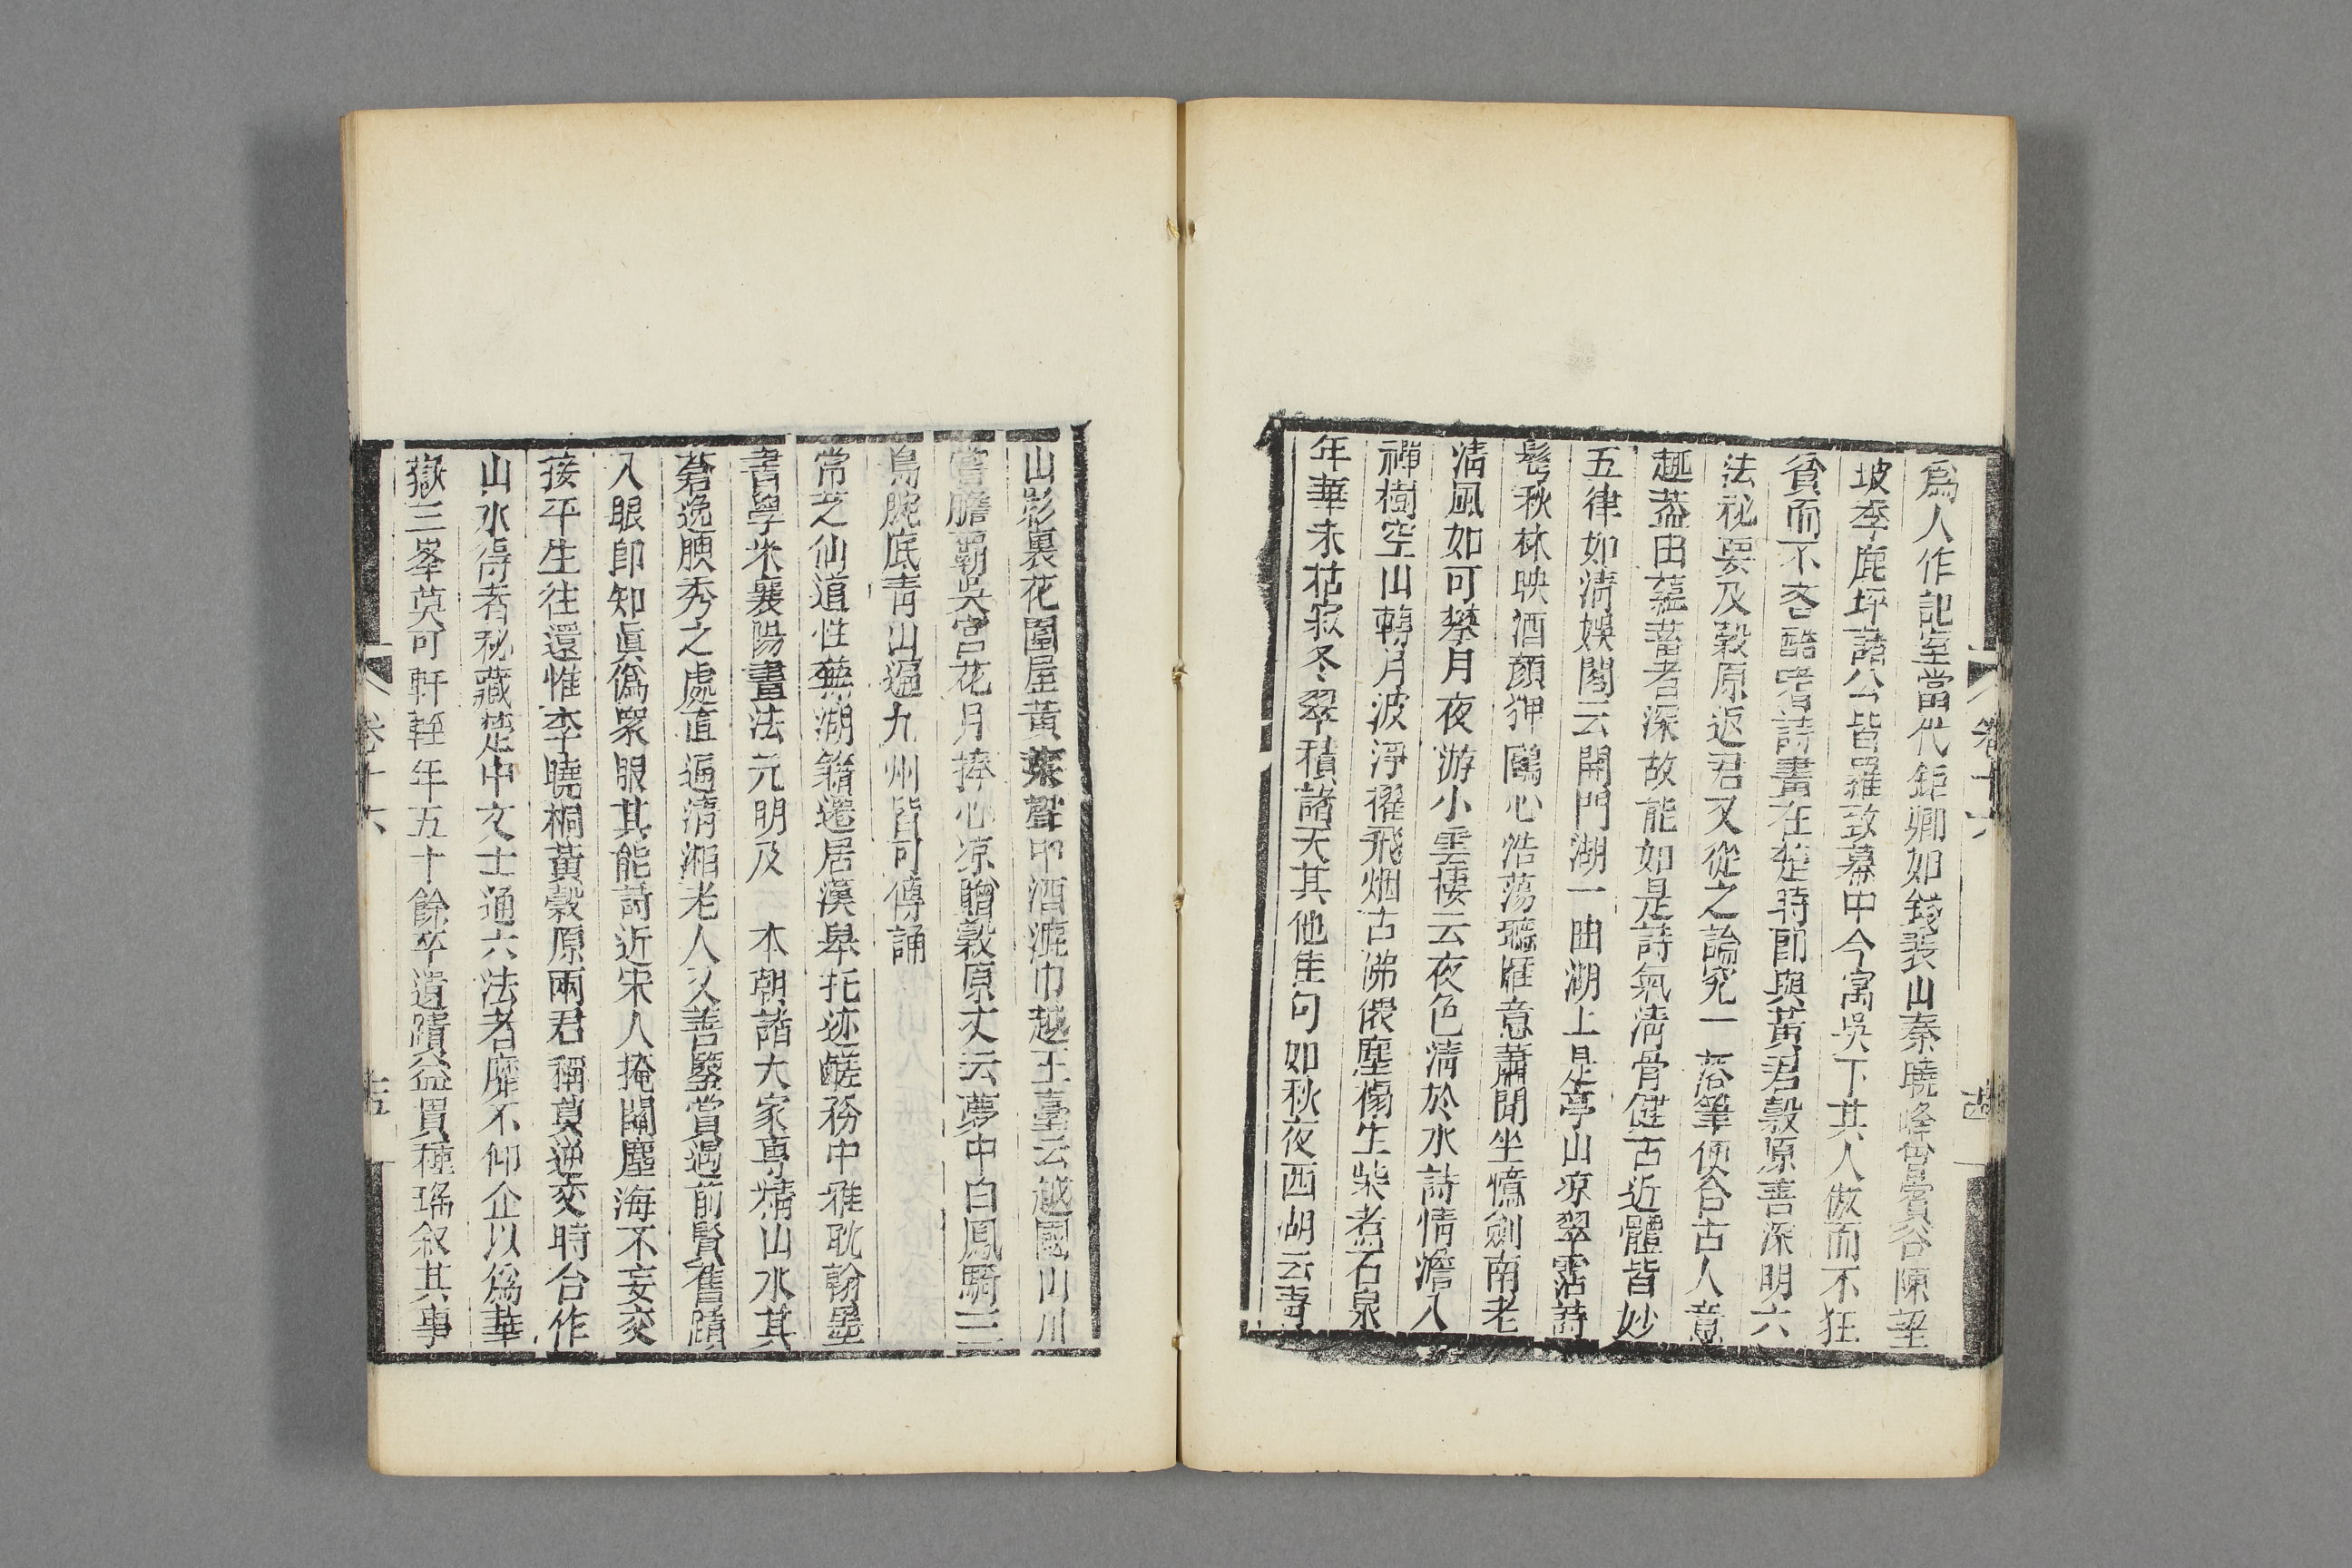 爲人作記室當代鉅卿如錢裴山秦曉峰曾賓谷陳望
坡李鹿坪諸公皆羅致幕中今寓吳下其人傲而不狂
貧而不吝酷嗜詩畫在楚時卽與黃君穀原善深明六
法祕要及穀原返君又從之論究一落筆便合古人意
趣葢由蘊蓄者深故能如是詩氣淸骨健古近體皆妙
五律如淸娛閣云開門湖一曲湖上是亭山凉翠霑詩
鬂秋林映酒顏狎鷗心浩蕩聽雁意蕭閒坐憶劍南老
淸風如可攀月夜游小雲棲云夜色淸於水詩情澹入
禪樹空山轉月波淨襬飛烟古佛偎塵榻生柴煮石泉
年華未枯寂冬翠積諸天其他佳句如秋夜西湖云靑
卷十六
古
山影裏花圍屋黃葉聲中酒漉巾越王臺云越國山川
嘗膽霸吳宮花月捧心凉贈穀原丈云夢中白鳳騎三
島腕底靑山遍九州皆可傳誦
常芝仙道性蕪湖籍遷居漢臯托迹鹺務中雅耽翰墨
書學米襄陽畫法元明及 本朝諸大家專精山水其
蒼逸腴秀之處直逼淸湘老人又善鑒賞遇前賢舊蹟
入眼卽知眞僞衆服其能詩近宋人掩關塵海不妄交
接平生往還惟李曉桐黃穀原兩君稱莫逆交時合作
山水得者秘藏楚中文士通六法者靡不仰企以爲華
嶽三峯莫可軒輊年五十餘卒遺蹟益貴種瑤叙其事
卷十六
十五